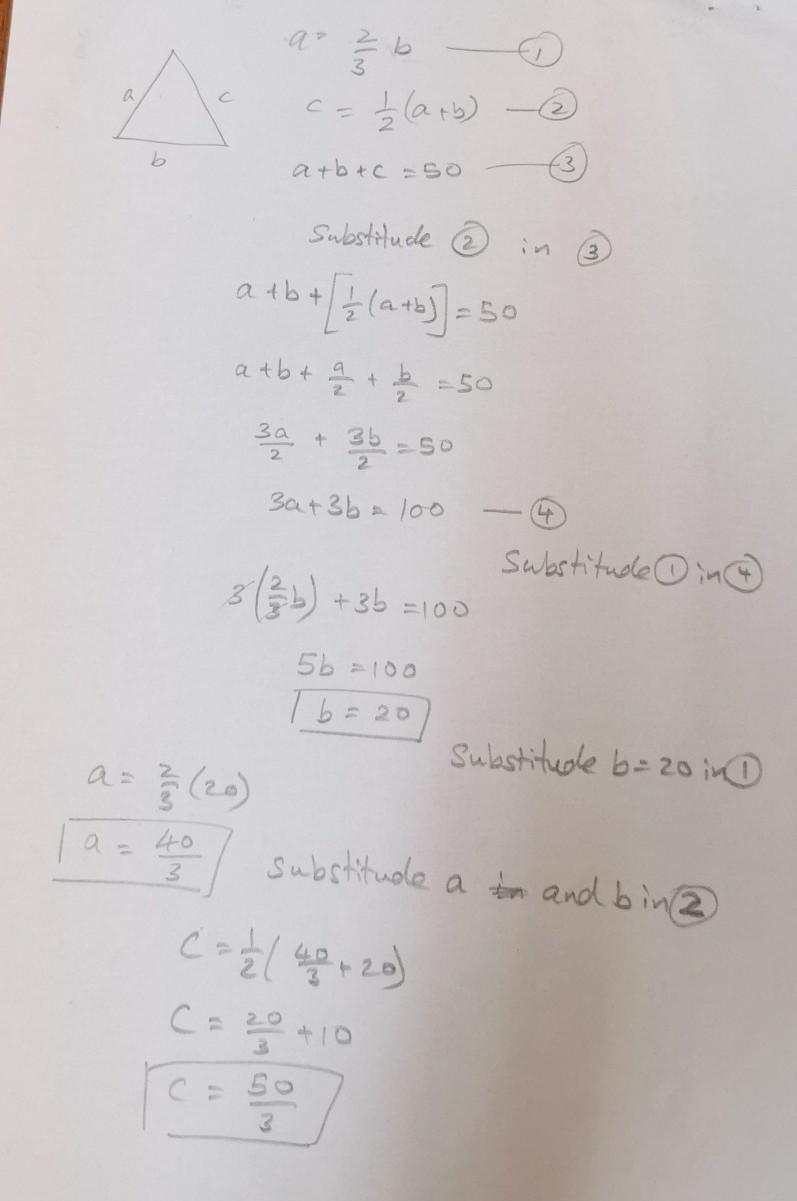 a = 2/3 b —— ①
a
c
b
c = 1/2 (a+b) — ②
a+b+c = 50 —— ③
Substitude ② in ③
a+b+[1/2 (a+b)] = 50
a+b+ a/2 + b/2 = 50
3a/2 + 3b/2 = 50
3a+3b = 100 — ④
Substitude ① in ④
3(2/3 b) + 3b = 100
5b = 100
b = 20
Substitude b = 20 in ①
a = 2/3 (20)
a = 40/3
Substitude a and b in ②
C = 1/2 ( 40/3 + 20)
C = 20/3 + 10
C = 50/3